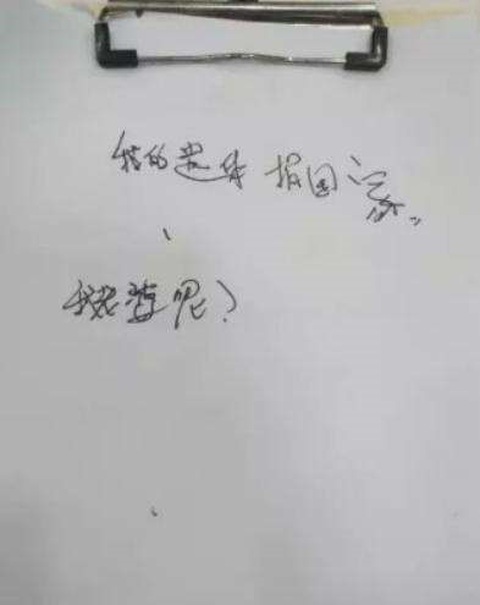 我的遗体捐国家。
我老婆呢?